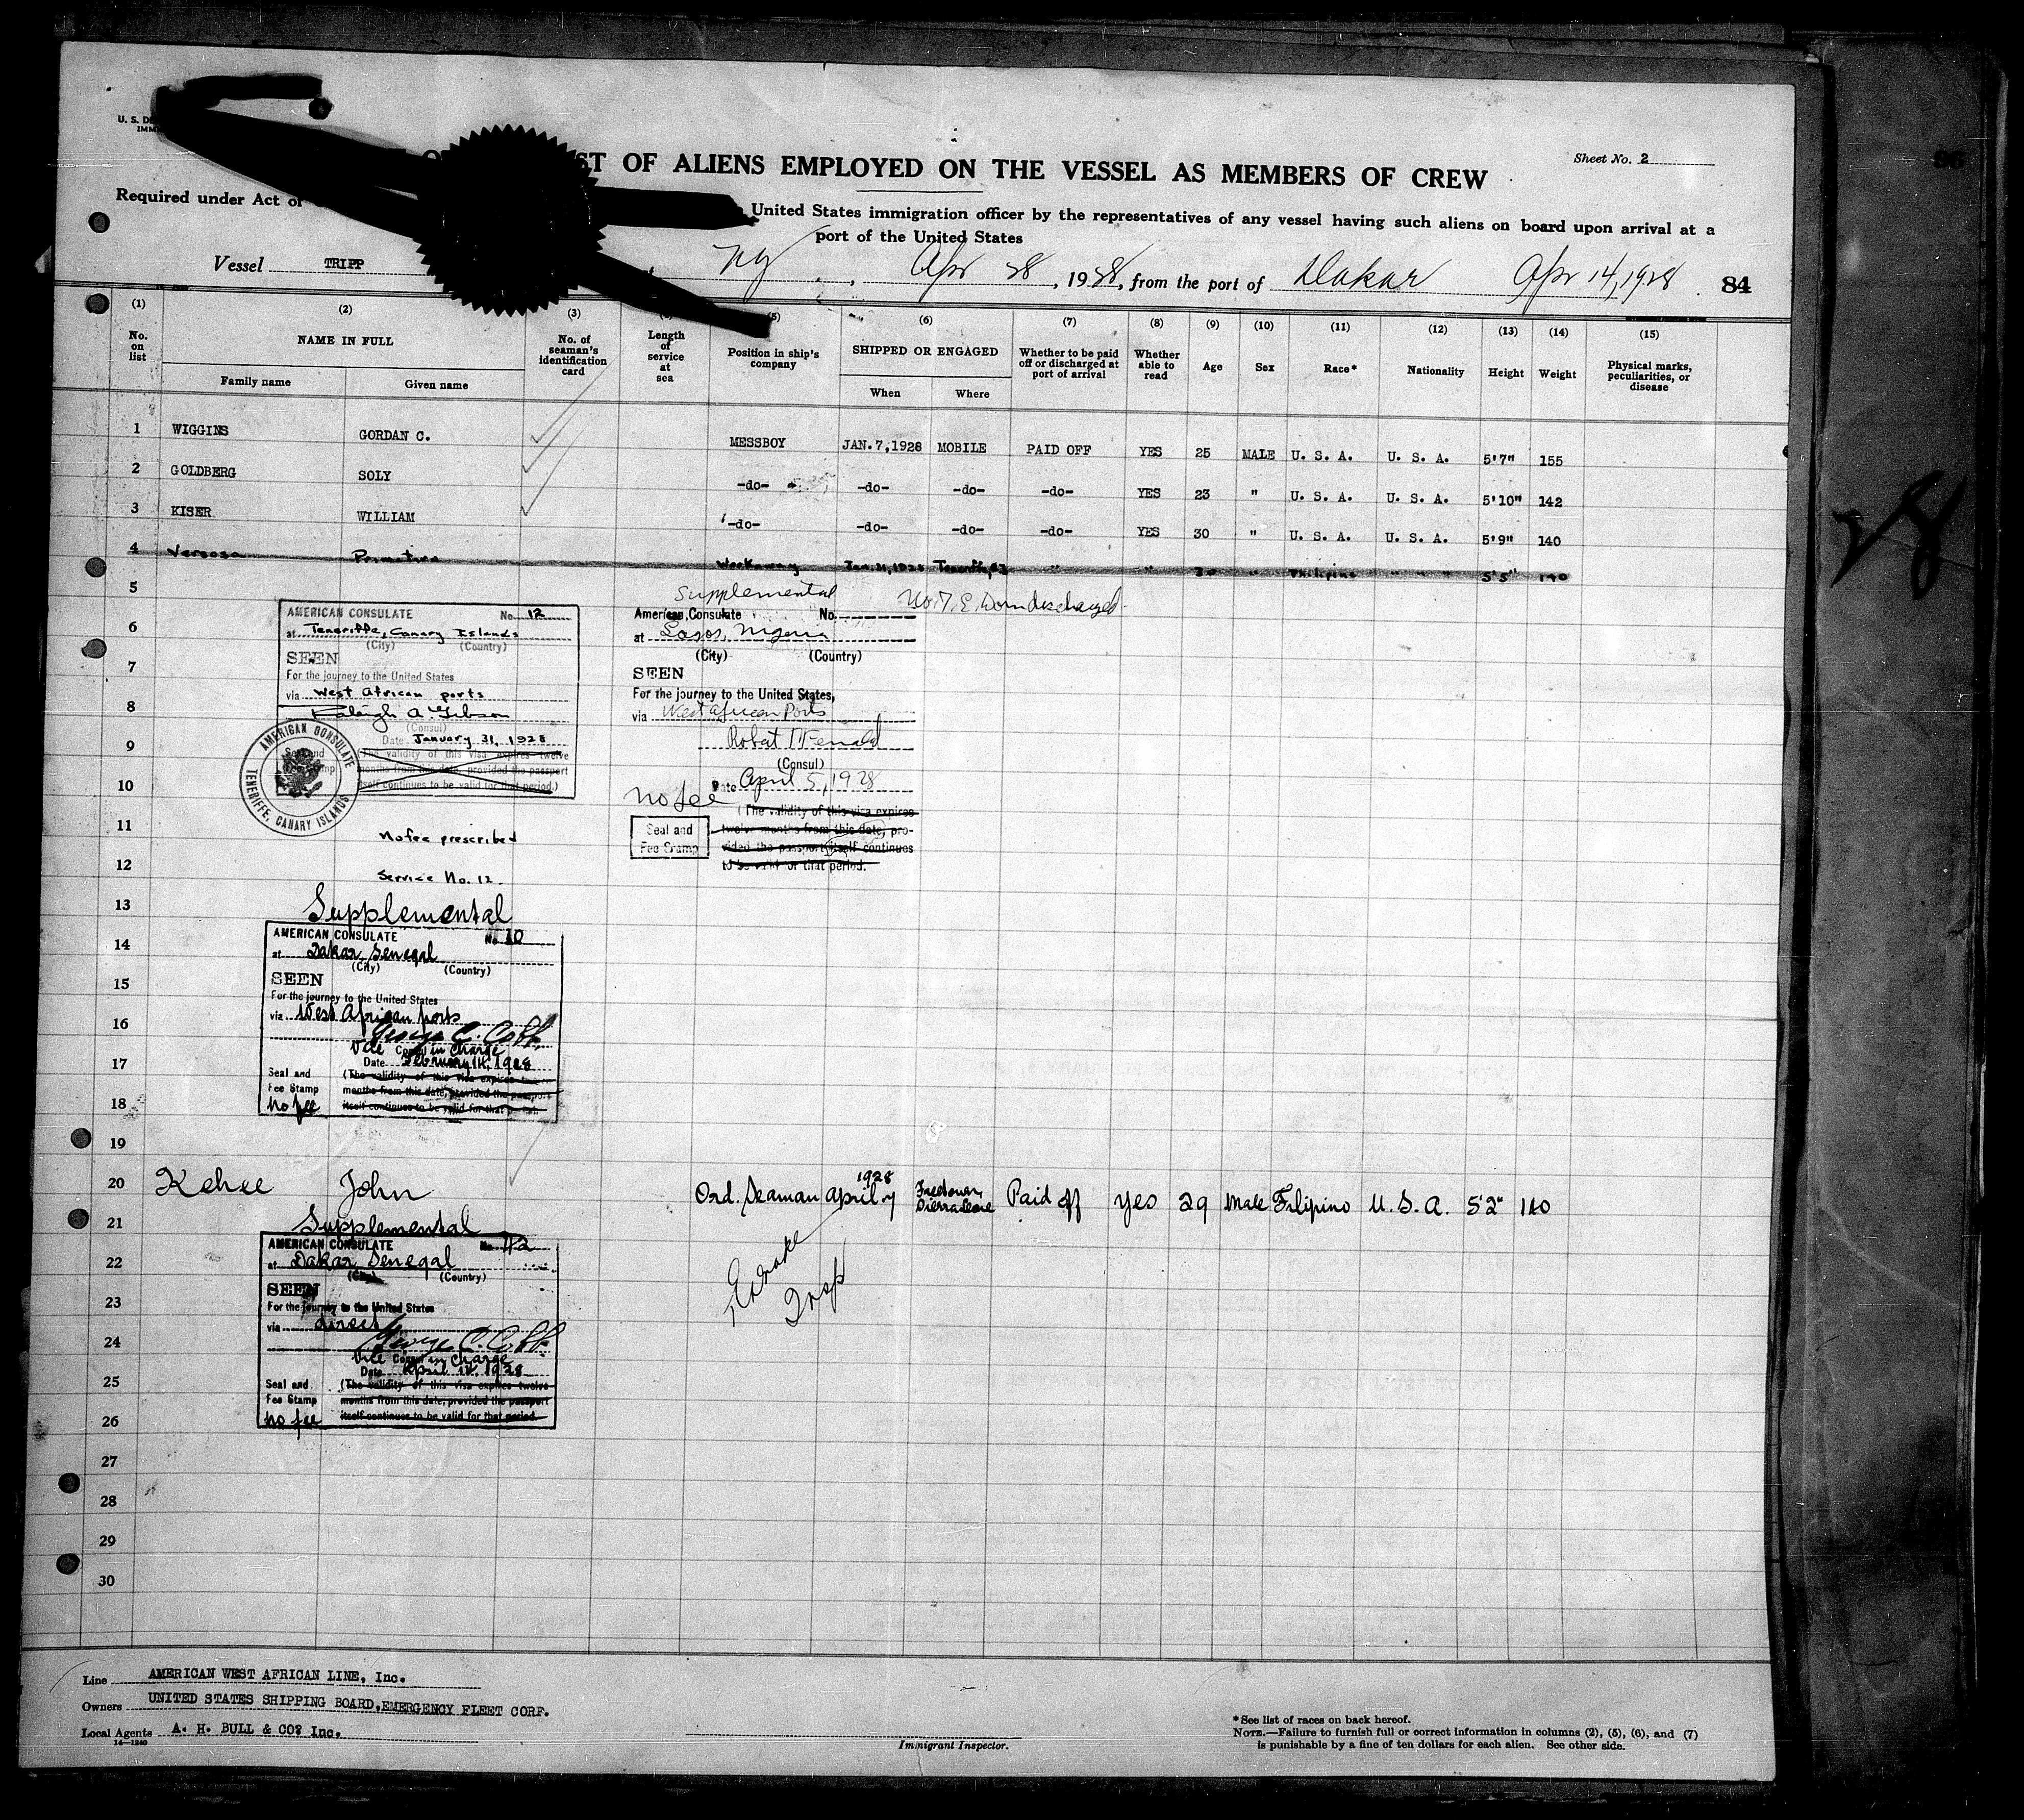 Sheet No. 2
ST OF ALIENS EMPLOYED ON THE VESSEL AS MEMBERS OF CREW
Required under Act of
United States immigration officer by the representatives of any vessel having such aliens on board upon arrival at a
port of the United States
Vessel TRIPP NY, Apr 28, 1928, from the port of Dakar Apr 14, 1928 84
(1) (2) (3) (5) (6) (7) (8) (9) (10) (11) (12) (13) (14) (15)
No. on list NAME IN FULL No. of seaman's identification card Length of service at sea Position in ship's company SHIPPED OR ENGAGED Whether to be paid off or discharged at port of arrival Whether able to read Age Sex Race* Nationality Height Weight Physical marks, peculiarities, or disease
Family name Given name When Where
1 WIGGINS GORDAN C. MESSBOY JAN. 7, 1928 MOBILE PAID OFF YES 25 MALE U. S. A. U. S. A. 5'7" 155
2 GOLDBERG SOLY -do- -do- -do- -do- YES 23 " U. S. A. U. S. A. 5'10" 142
3 KISER WILLIAM -do- -do- -do- -do- YES 30 " U. S. A. U. S. A. 5'9" 140
4 Workaway Jan. 31, 1928 " " 30 " " " " 5'5" 140
5
6
7
8
9
10
11
12
13
14
15
16
17
18
19
AMERICAN CONSULATE No. 12
at Teneriffe, Canary Islands
(City) (Country)
SEEN
For the journey to the United States
via West African ports
Raleigh A. Gibson
(Consul)
Date January 31, 1928
Seal and Fee Stamp
(The validity of this visa expires twelve
months from this date, provided the passport
itself continues to be valid for that period.)
AMERICAN CONSULATE
TENERIFFE, CANARY ISLANDS
No fee prescribed
Service No. 12.
Supplemental
American Consulate No.
at Lagos, Nigeria
(City) (Country)
SEEN
For the journey to the United States,
via West African Ports
(Consul)
Date April 5, 1928
no fee
Seal and
Fee Stamp
(The validity of this visa expires
twelve months from this date, pro-
vided the passport itself continues
to be valid for that period.
Supplemental
AMERICAN CONSULATE No. 10
at Dakar, Senegal
(City) (Country)
SEEN
For the journey to the United States
via West African ports
George C. Cobb
Vice Consul in Charge
Date February 14, 1928
Seal and
Fee Stamp
no fee
(The validity of this visa expires
months from this date, provided the passport
itself continues to be valid for that
20 Kehee John Ord. Seaman April 7 1928 Freetown, Sierra Leone Paid off Yes 29 Male Filipino U. S. A. 5'2" 140
21
22
23
24
25
26
27
28
29
30
Supplemental
AMERICAN CONSULATE No. 42
at Dakar Senegal
(City) (Country)
SEEN
For the journey to the United States
via direct
George C. Cobb
Vice Consul in Charge
Date April 14, 1928
Seal and
Fee Stamp
no fee
(The validity of this visa expires twelve
months from this date, provided the passport
itself continues to be valid for that period.
Line AMERICAN WEST AFRICAN LINE, Inc.
Owners UNITED STATES SHIPPING BOARD, EMERGENCY FLEET CORF.
Local Agents A. H. BULL & CO? Inc.
14—1240
Immigrant Inspector.
*See list of races on back hereof.
NOTE.—Failure to furnish full or correct information in columns (2), (5), (6), and (7)
is punishable by a fine of ten dollars for each alien. See other side.